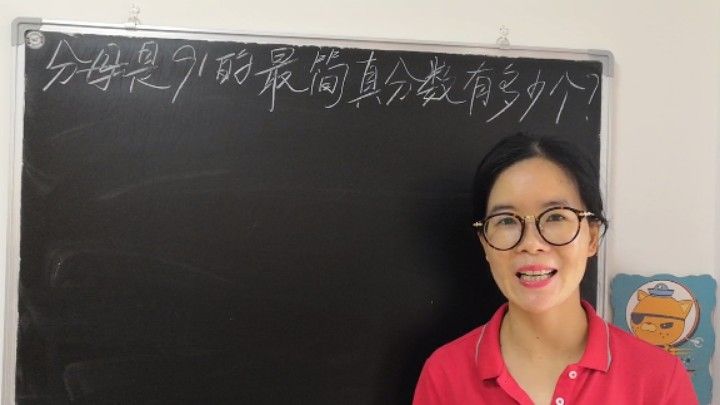 分母是91的最简真分数有多少个?